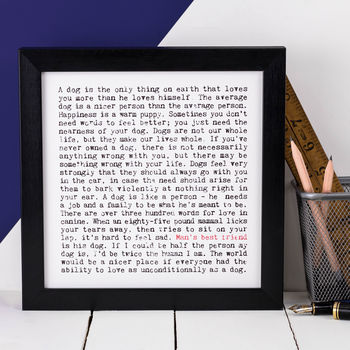 A dog is the only thing on earth that loves
you more than he loves himself. The average
dog is a nicer person than the average person.
Happiness is a warm puppy. Sometimes you don't
need words to feel better; you just need the
nearness of your dog. Dogs are not our whole
life, but they make our lives whole. If you've
never owned a dog, there is not necessarily
anything wrong with you, but there may be
something wrong with your life. Dogs feel very
strongly that they should always go with you
in the car, in case the need should arise for
them to bark violently at nothing right in
your ear. A dog is like a person - he needs
a job and a family to be what he's meant to be.
There are over three hundred words for love in
canine. When an eighty-five pound mammal licks
your tears away, then tries to sit on your
lap, it's hard to feel sad. Man's best friend
is his dog. If I could be half the person my
dog is, I'd be twice the human I am. The world
would be a nicer place if everyone had the
ability to love as unconditionally as a dog.